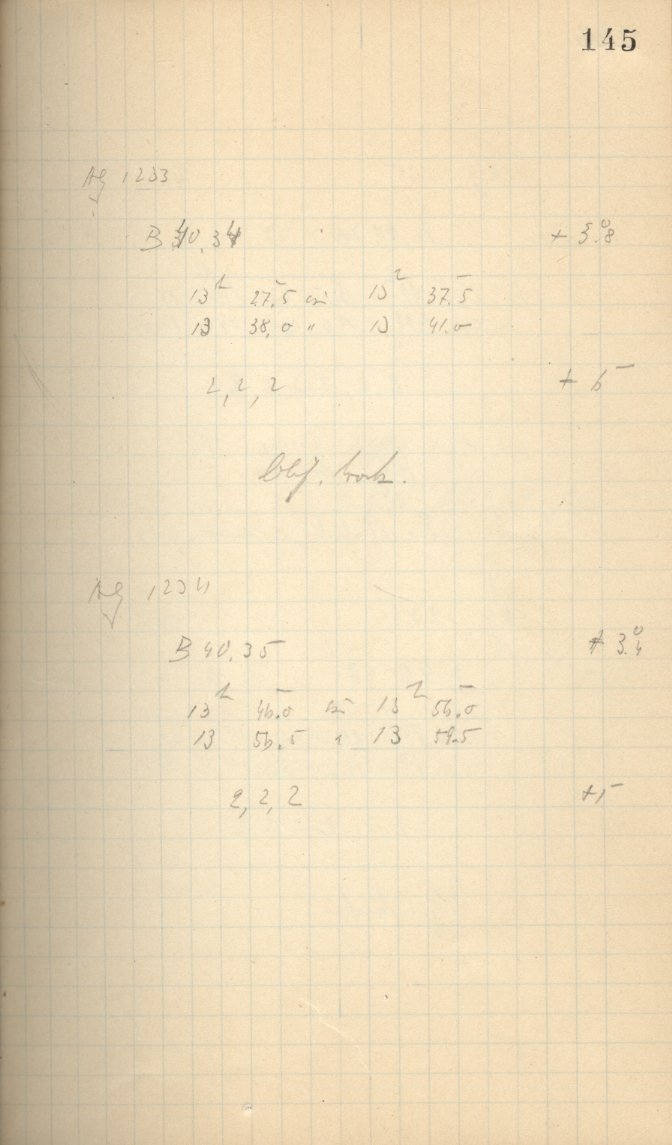 145
AG 1233
B 40.34 + 3.°8
13ʰ 27.5 bis 13ʰ 37.5
13 38.0 " 13 41.0
2, 2, 2 +
Obj. trock.
AG 1234
B 40.35 + 3.°4
13ʰ 46.0 bis 13ʰ 56.0
13 56.5 " 13 59.5
2, 2, 2 +1⁻